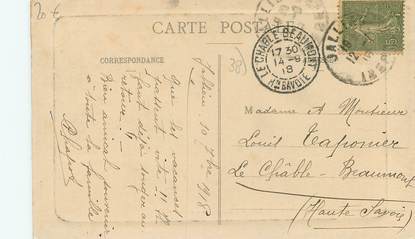 CARTE POSTALE
CORRESPONDANCE
LE CHABLE BEAUMONT
17 30
14 -9
18
Hte SAVOIE
38
10 7bre 1918
Que les vacances
passent vite !! Il
faut déjà songer au
retour !
Bien amical souvenir
à toute la famille
Madame & Monsieur
Louis Taponier
Le Châble - Beaumont
(Haute Savoie)